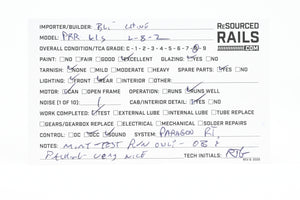 IMPORTER/BUILDER: BLI
RESOURCED RAILS .COM
MODEL: PRR L1s 2-8-2
OVERALL CONDITION/TCA GRADE: C-1-2-3-4-5-6-7-8-9
PAINT: NO FAIR GOOD EXCELLENT GLAZING: YES NO
TARNISH: NONE MILD MODERATE HEAVY SPARE PARTS: YES NO
LIGHTING: FRONT REAR INTERIOR OTHER:
MOTOR: CAN OPEN FRAME OPERATION: RUNS RUNS WELL
NOISE (1 OF 10): 1 CAB/INTERIOR DETAIL: YES NO
WORK COMPLETED: TEST EXTERNAL LUBE INTERNAL LUBE TUBE REPLACE
GEARS/GEARBOX REPLACE ELECTRONIC MECHANICAL SOLDER REPAIRS
CONTROL: DC DCC SOUND SYSTEM: PARAGON
NOTES: MINT - TEST RUN ONLY - OB &
PACKING VERY NICE
TECH INITIALS: